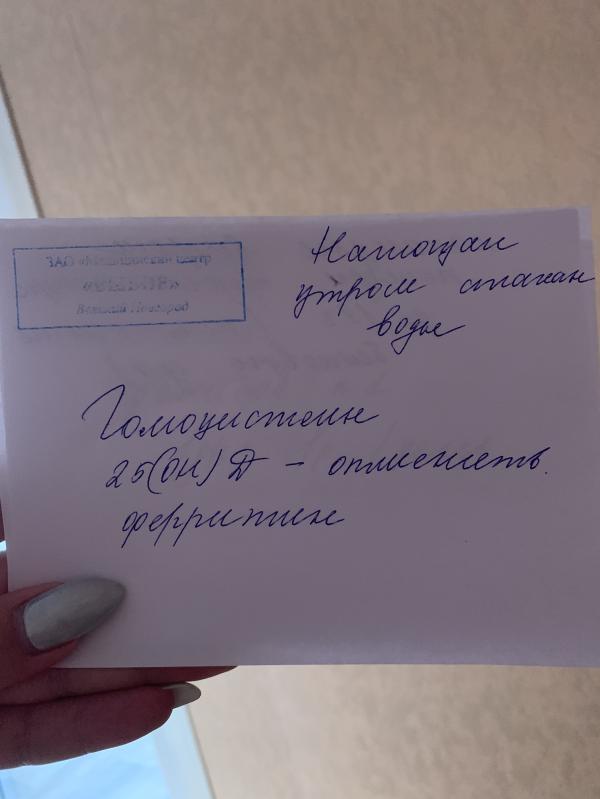 ЗАО «Медицинский центр
Великий Новгород
Натощак
утром стакан
воды
Гомоцистеин
25(ОН) Д –
ферритин